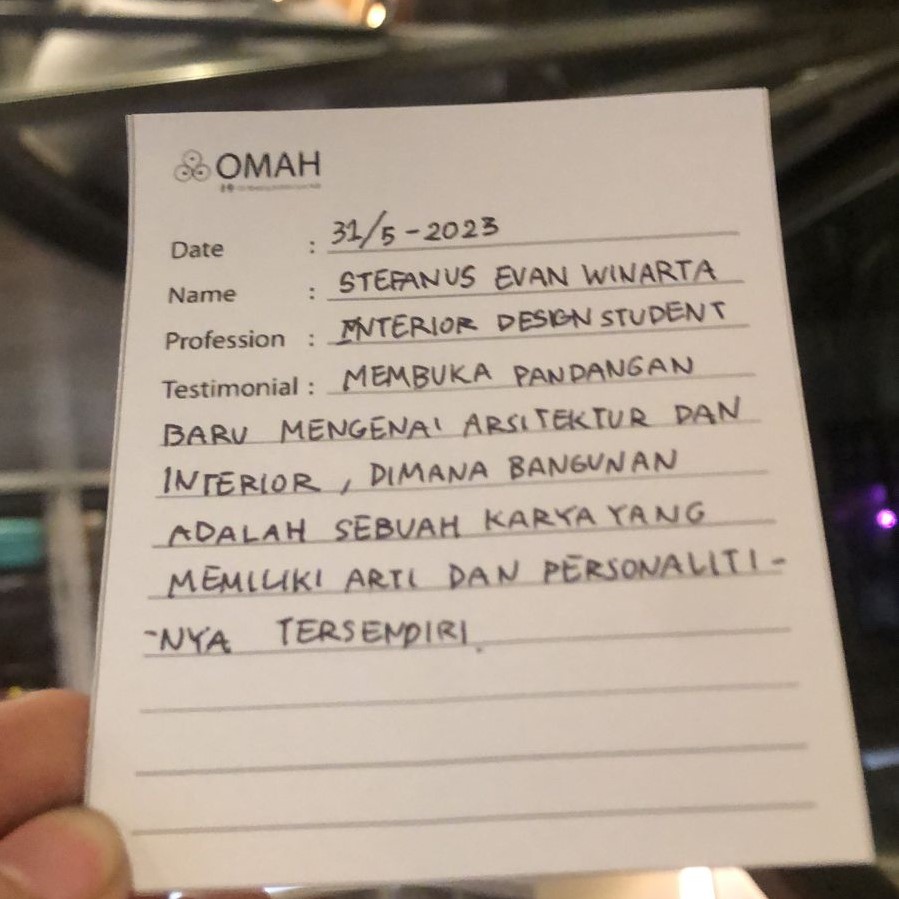 OMAH
Date : 31/5-2023
Name : STEFANUS EVAN WINARTA
Profession : INTERIOR DESIGN STUDENT
Testimonial : MEMBUKA PANDANGAN
BARU MENGENAI ARSITEKTUR DAN
INTERIOR, DIMANA BANGUNAN
ADALAH SEBUAH KARYA YANG
MEMILIKI ARTI DAN PERSONALITI-
-NYA TERSENDIRI.